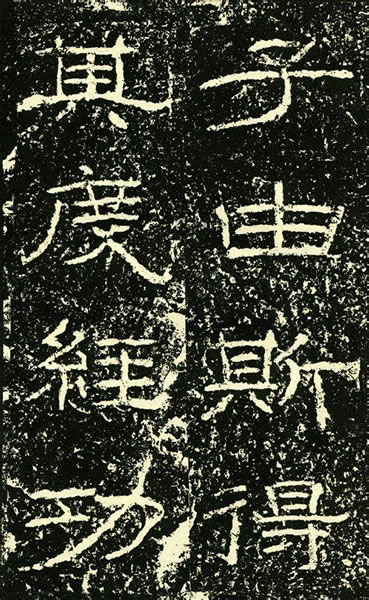 子由斯得
其度經功